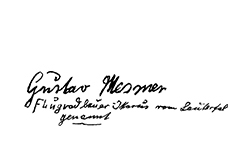 Gustav Mesmer
Flugradbauer Ikarus vom Lautertal
genannt